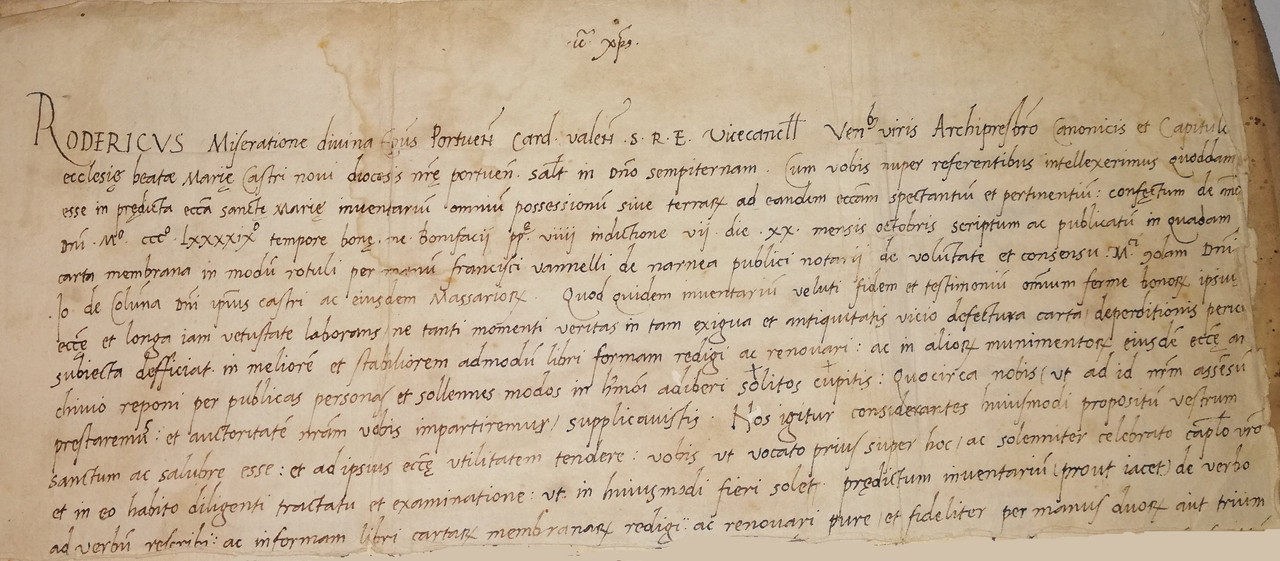 ·ūˉ· xp̄s·
RODERICVS Miseratione divina Ep̄us Portueñ Card. valeñ .S. R. E. Vicecancell̄ Venb̄ viris Archipresbr̄o Canonicis et Capitulo
ecclesię beatae Marię Castri novi diocesis nr̄ę portueñ. sal̄t in Dn̄o sempiternam. Cum vobis nuper referentibus intellexerimus quoddam
esse in prędicta eccā sanctę Marię inventariū omniū possessionū sive terraꝝ ad eandem eccām spectantiū et pertinentiū: confectum de
Dn̄i .Mº cccº Lxxxxixº tempore bonę. me. Bonifacii pp̄ę. viiii indictione vii. die .xx. mensis octobris scriptum ac publicatū in quadam
carta membrana in modū rotuli per manū francisci vannelli de narnea publici notarii de volūtate et consensu .Dn̄i
.Jo. de Colūna Dn̄i ip̄ius castri ac eiusdem Massarioꝝ. Quod quidem inventariū veluti fidem et testimoniū omnium ferme bonoꝝ ipsius
eccę et longa iam vetustate laborans/ ne tanti momenti veritas in tam exigua et antiquitatis vicio defectura carta/ deperditionis
subiecta defficiat. in melioré et stabiliorem admodū libri formam redigi ac renovari: ac in alioꝝ munimentoꝝ eiusdē eccę ar
chivio reponi per publicas personas et sollennes modos in h̄mōi adiberi solitos cupitis: Quocirca nobis/ ut ad id nr̄m assēsū
prestaremus: et auctoritatē nr̄am vobis impartiremur/ supplicavistis. Nos igitur considerantes huiusmodi propositū vestrum
sanctum ac salubre esse: et ad ipsius eccę utilitatem tendere: vobis ut vocato prius super hoc/ ac solenniter celebrato capl̄o vr̄o
et in eo habito diligenti tractatu et examinatione: ut in huiusmodi fieri solet prędictum inventariū (prout iacet) de verbo
ad verbū rescribi: ac in formam libri cartaꝝ membranaꝝ redigi: ac renovari pure/ et fideliter per manus duoꝝ aut trium